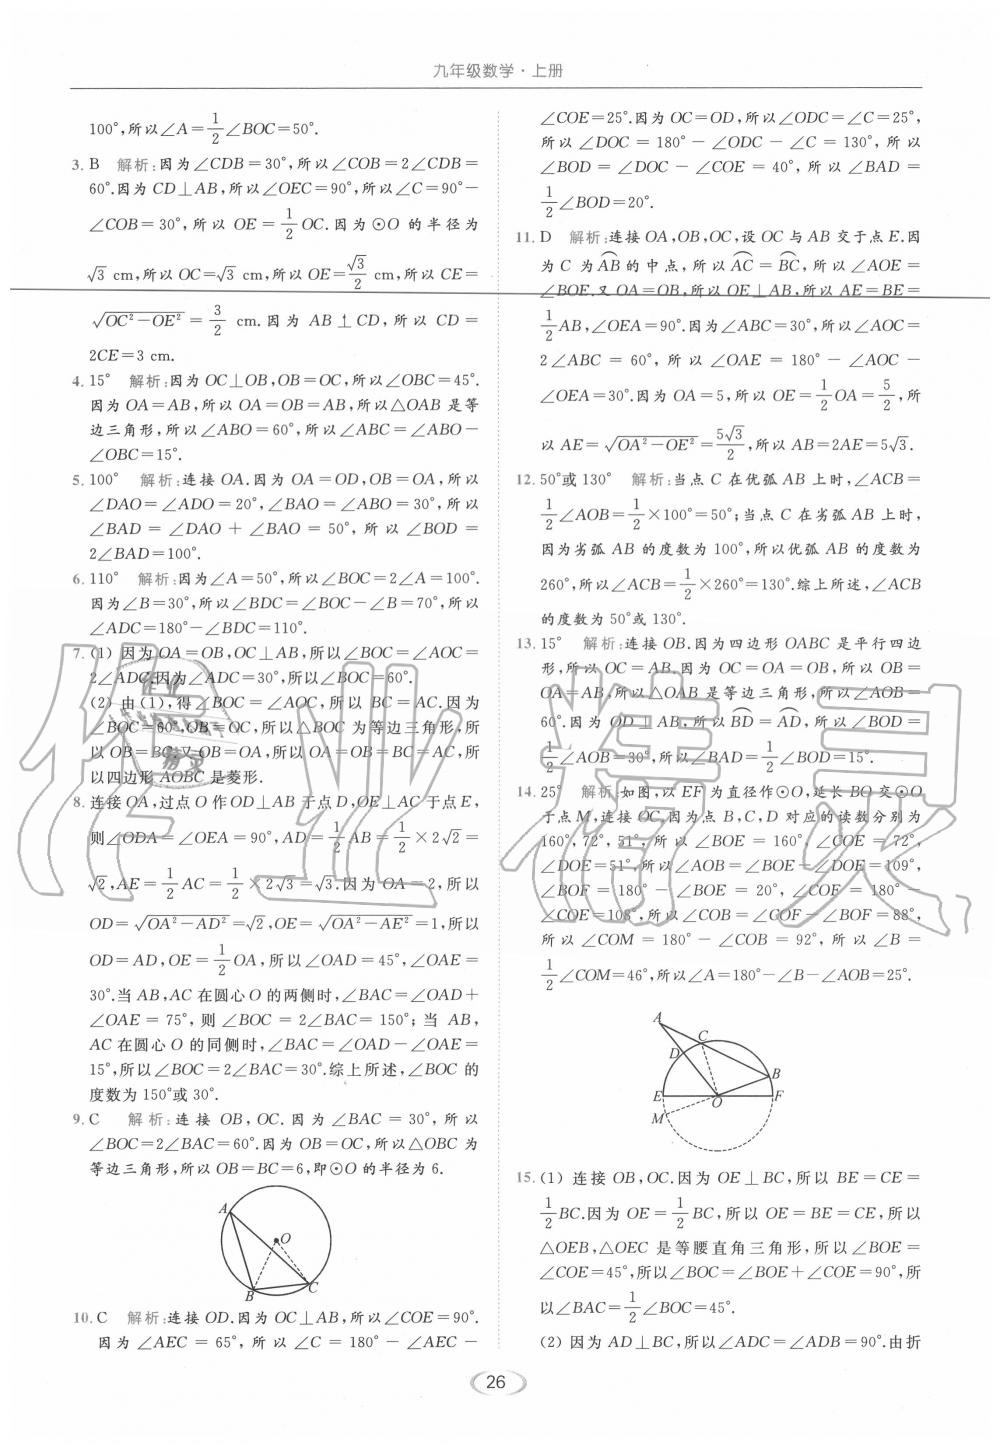 九年级数学·上册
100°,所以∠A=1/2∠BOC=50°.
3. B 解析:因为∠CDB=30°,所以∠COB=2∠CDB=
60°.因为CD⊥AB,所以∠OEC=90°,所以∠C=90°-
∠COB=30°,所以 OE=1/2 OC.因为⊙O的半径为
√3 cm,所以OC=√3 cm,所以OE=√3/2 cm,所以CE=
√(OC²-OE²)=3/2 cm.因为 AB⊥CD,所以 CD=
2CE=3 cm.
4. 15° 解析:因为OC⊥OB,OB=OC,所以∠OBC=45°.
因为OA=AB,所以OA=OB=AB,所以△OAB是等
边三角形,所以∠ABO=60°,所以∠ABC=∠ABO-
∠OBC=15°.
5. 100° 解析:连接OA.因为OA=OD,OB=OA,所以
∠DAO=∠ADO=20°,∠BAO=∠ABO=30°,所以
∠BAD=∠DAO+∠BAO=50°,所以∠BOD=
2∠BAD=100°.
6. 110° 解析:因为∠A=50°,所以∠BOC=2∠A=100°.
因为∠B=30°,所以∠BDC=∠BOC-∠B=70°,所以
∠ADC=180°-∠BDC=110°.
7. (1) 因为OA=OB,OC⊥AB,所以∠BOC=∠AOC=
2∠ADC.因为∠ADC=30°,所以∠BOC=60°.
(2) 由(1),得∠BOC=∠AOC,所以BC=AC.因为
∠BOC=60°,OB=OC,所以△BOC为等边三角形,所
以OB=BC.又OB=OA,所以OA=OB=BC=AC,所
以四边形AOBC是菱形.
8. 连接OA,过点O作OD⊥AB于点D,OE⊥AC于点E,
则∠ODA=∠OEA=90°,AD=1/2 AB=1/2×2√2=
√2,AE=1/2 AC=1/2×2√3=√3.因为OA=2,所以
OD=√(OA²-AD²)=√2,OE=√(OA²-AE²)=1,所以
OD=AD,OE=1/2 OA,所以∠OAD=45°,∠OAE=
30°.当AB,AC在圆心O的两侧时,∠BAC=∠OAD+
∠OAE=75°,则∠BOC=2∠BAC=150°;当 AB,
AC在圆心O的同侧时,∠BAC=∠OAD-∠OAE=
15°,所以∠BOC=2∠BAC=30°.综上所述,∠BOC的
度数为150°或30°.
9. C 解析:连接 OB,OC.因为∠BAC=30°,所以
∠BOC=2∠BAC=60°.因为OB=OC,所以△OBC为
等边三角形,所以OB=BC=6,即⊙O的半径为6.
A
O
B
C
10. C 解析:连接OD.因为OC⊥AB,所以∠COE=90°.
因为∠AEC=65°,所以∠C=180°-∠AEC-
∠COE=25°.因为OC=OD,所以∠ODC=∠C=25°,
所以∠DOC=180°-∠ODC-∠C=130°,所以
∠BOD=∠DOC-∠COE=40°,所以∠BAD=
1/2∠BOD=20°.
11. D 解析:连接OA,OB,OC,设OC与AB交于点E.因
为C为AB⌒的中点,所以AC⌒=BC⌒,所以∠AOE=
∠BOE.又OA=OB,所以OE⊥AB,所以AE=BE=
1/2 AB,∠OEA=90°.因为∠ABC=30°,所以∠AOC=
2∠ABC=60°,所以∠OAE=180°-∠AOC-
∠OEA=30°.因为OA=5,所以OE=1/2 OA=5/2,所
以AE=√(OA²-OE²)=5√3/2,所以AB=2AE=5√3.
12. 50°或130° 解析:当点C在优弧AB上时,∠ACB=
1/2∠AOB=1/2×100°=50°;当点C在劣弧AB上时,
因为劣弧AB的度数为100°,所以优弧AB的度数为
260°,所以∠ACB=1/2×260°=130°.综上所述,∠ACB
的度数为50°或130°.
13. 15° 解析:连接OB.因为四边形OABC是平行四边
形,所以OC=AB.因为OC=OA=OB,所以OB=
OA=AB,所以△OAB是等边三角形,所以∠AOB=
60°.因为OD⊥AB,所以BD⌒=AD⌒,所以∠BOD=
1/2∠AOB=30°,所以∠BAD=1/2∠BOD=15°.
14. 25° 解析:如图,以EF为直径作⊙O,延长BO交⊙O
于点M,连接OC.因为点B,C,D对应的读数分别为
160°,72°,51°,所以∠BOE=160°,∠COE=72°,
∠DOE=51°,所以∠AOB=∠BOE-∠DOE=109°,
∠BOF=180°-∠BOE=20°,∠COF=180°-
∠COE=108°,所以∠COB=∠COF-∠BOF=88°,
所以∠COM=180°-∠COB=92°,所以∠B=
1/2∠COM=46°,所以∠A=180°-∠B-∠AOB=25°.
A
C
D
B
E
O
F
M
15. (1) 连接OB,OC.因为OE⊥BC,所以BE=CE=
1/2 BC.因为OE=1/2 BC,所以OE=BE=CE,所以
△OEB,△OEC是等腰直角三角形,所以∠BOE=
∠COE=45°,所以∠BOC=∠BOE+∠COE=90°,所
以∠BAC=1/2∠BOC=45°.
(2) 因为AD⊥BC,所以∠ADC=∠ADB=90°.由折
26
作业精灵